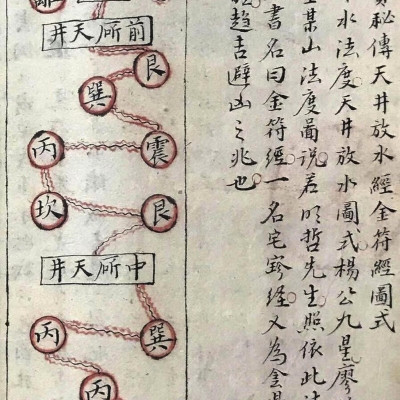 秘傳天井放水經金符經圖式
水法度天井放水圖式楊公九星廖
某山法度圖說若明哲先生照依此法
書名曰金符經一名宅寶經又為金
趨吉避凶之兆也
離
前所天井
艮
巽
震
丙
艮
坎
中所天井
巽
丙
丙